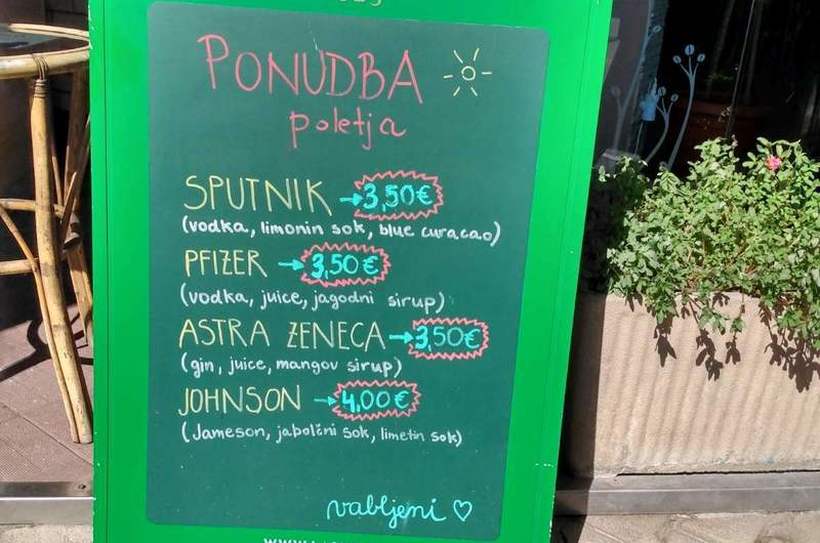 PONUDBA
poletja
SPUTNIK → 3,50€
(vodka, limonin sok, blue curacao)
PFIZER → 3,50€
(vodka, juice, jagodni sirup)
ASTRA ZENECA → 3,50€
(gin, juice, mangov sirup)
JOHNSON → 4,00€
(Jameson, jabolčni sok, limetin sok)
vabljeni ♡